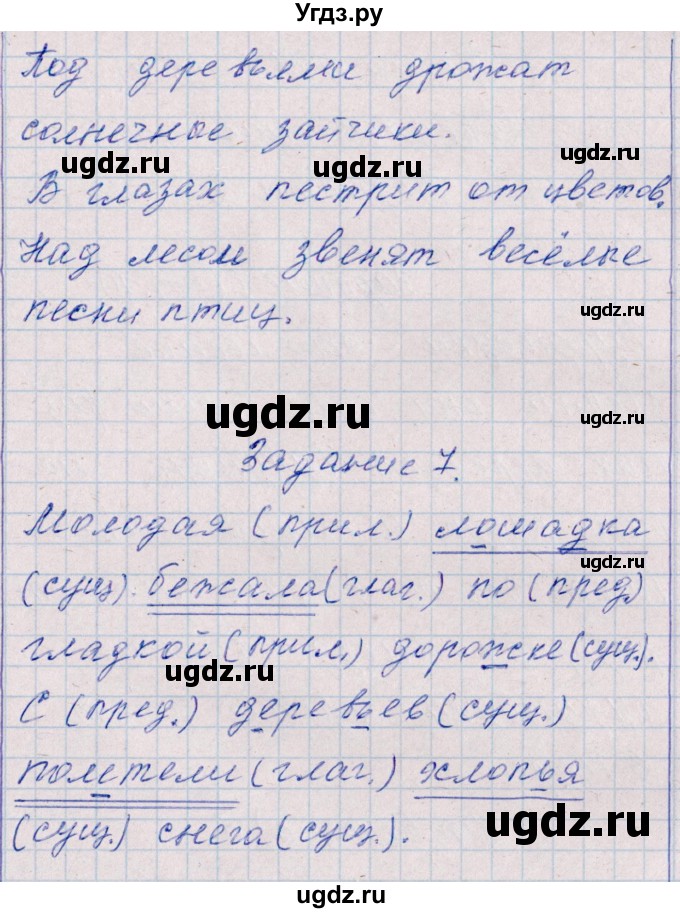 Угдз.ру
Под деревьями дрожат
солнечные зайчики.
ugdz.ru ugdz.ru ugdz.ru
В глазах пестрит от цветов.
Над лесом звенят весёлые
песни птиц.
ugdz.ru
ugdz.ru ugdz.ru
Задание 7.
ugdz.ru
Молодая (прил.) лошадка
ugdz.ru
(сущ). бежала (глаг.) по (пред)
гладкой (прил.) дорожке (сущ.).
ugdz.ru
С (пред.) деревьев (сущ.)
полетели (глаг.) хлопья
ugdz.ru
(сущ.) снега (сущ.).
ugdz.ru